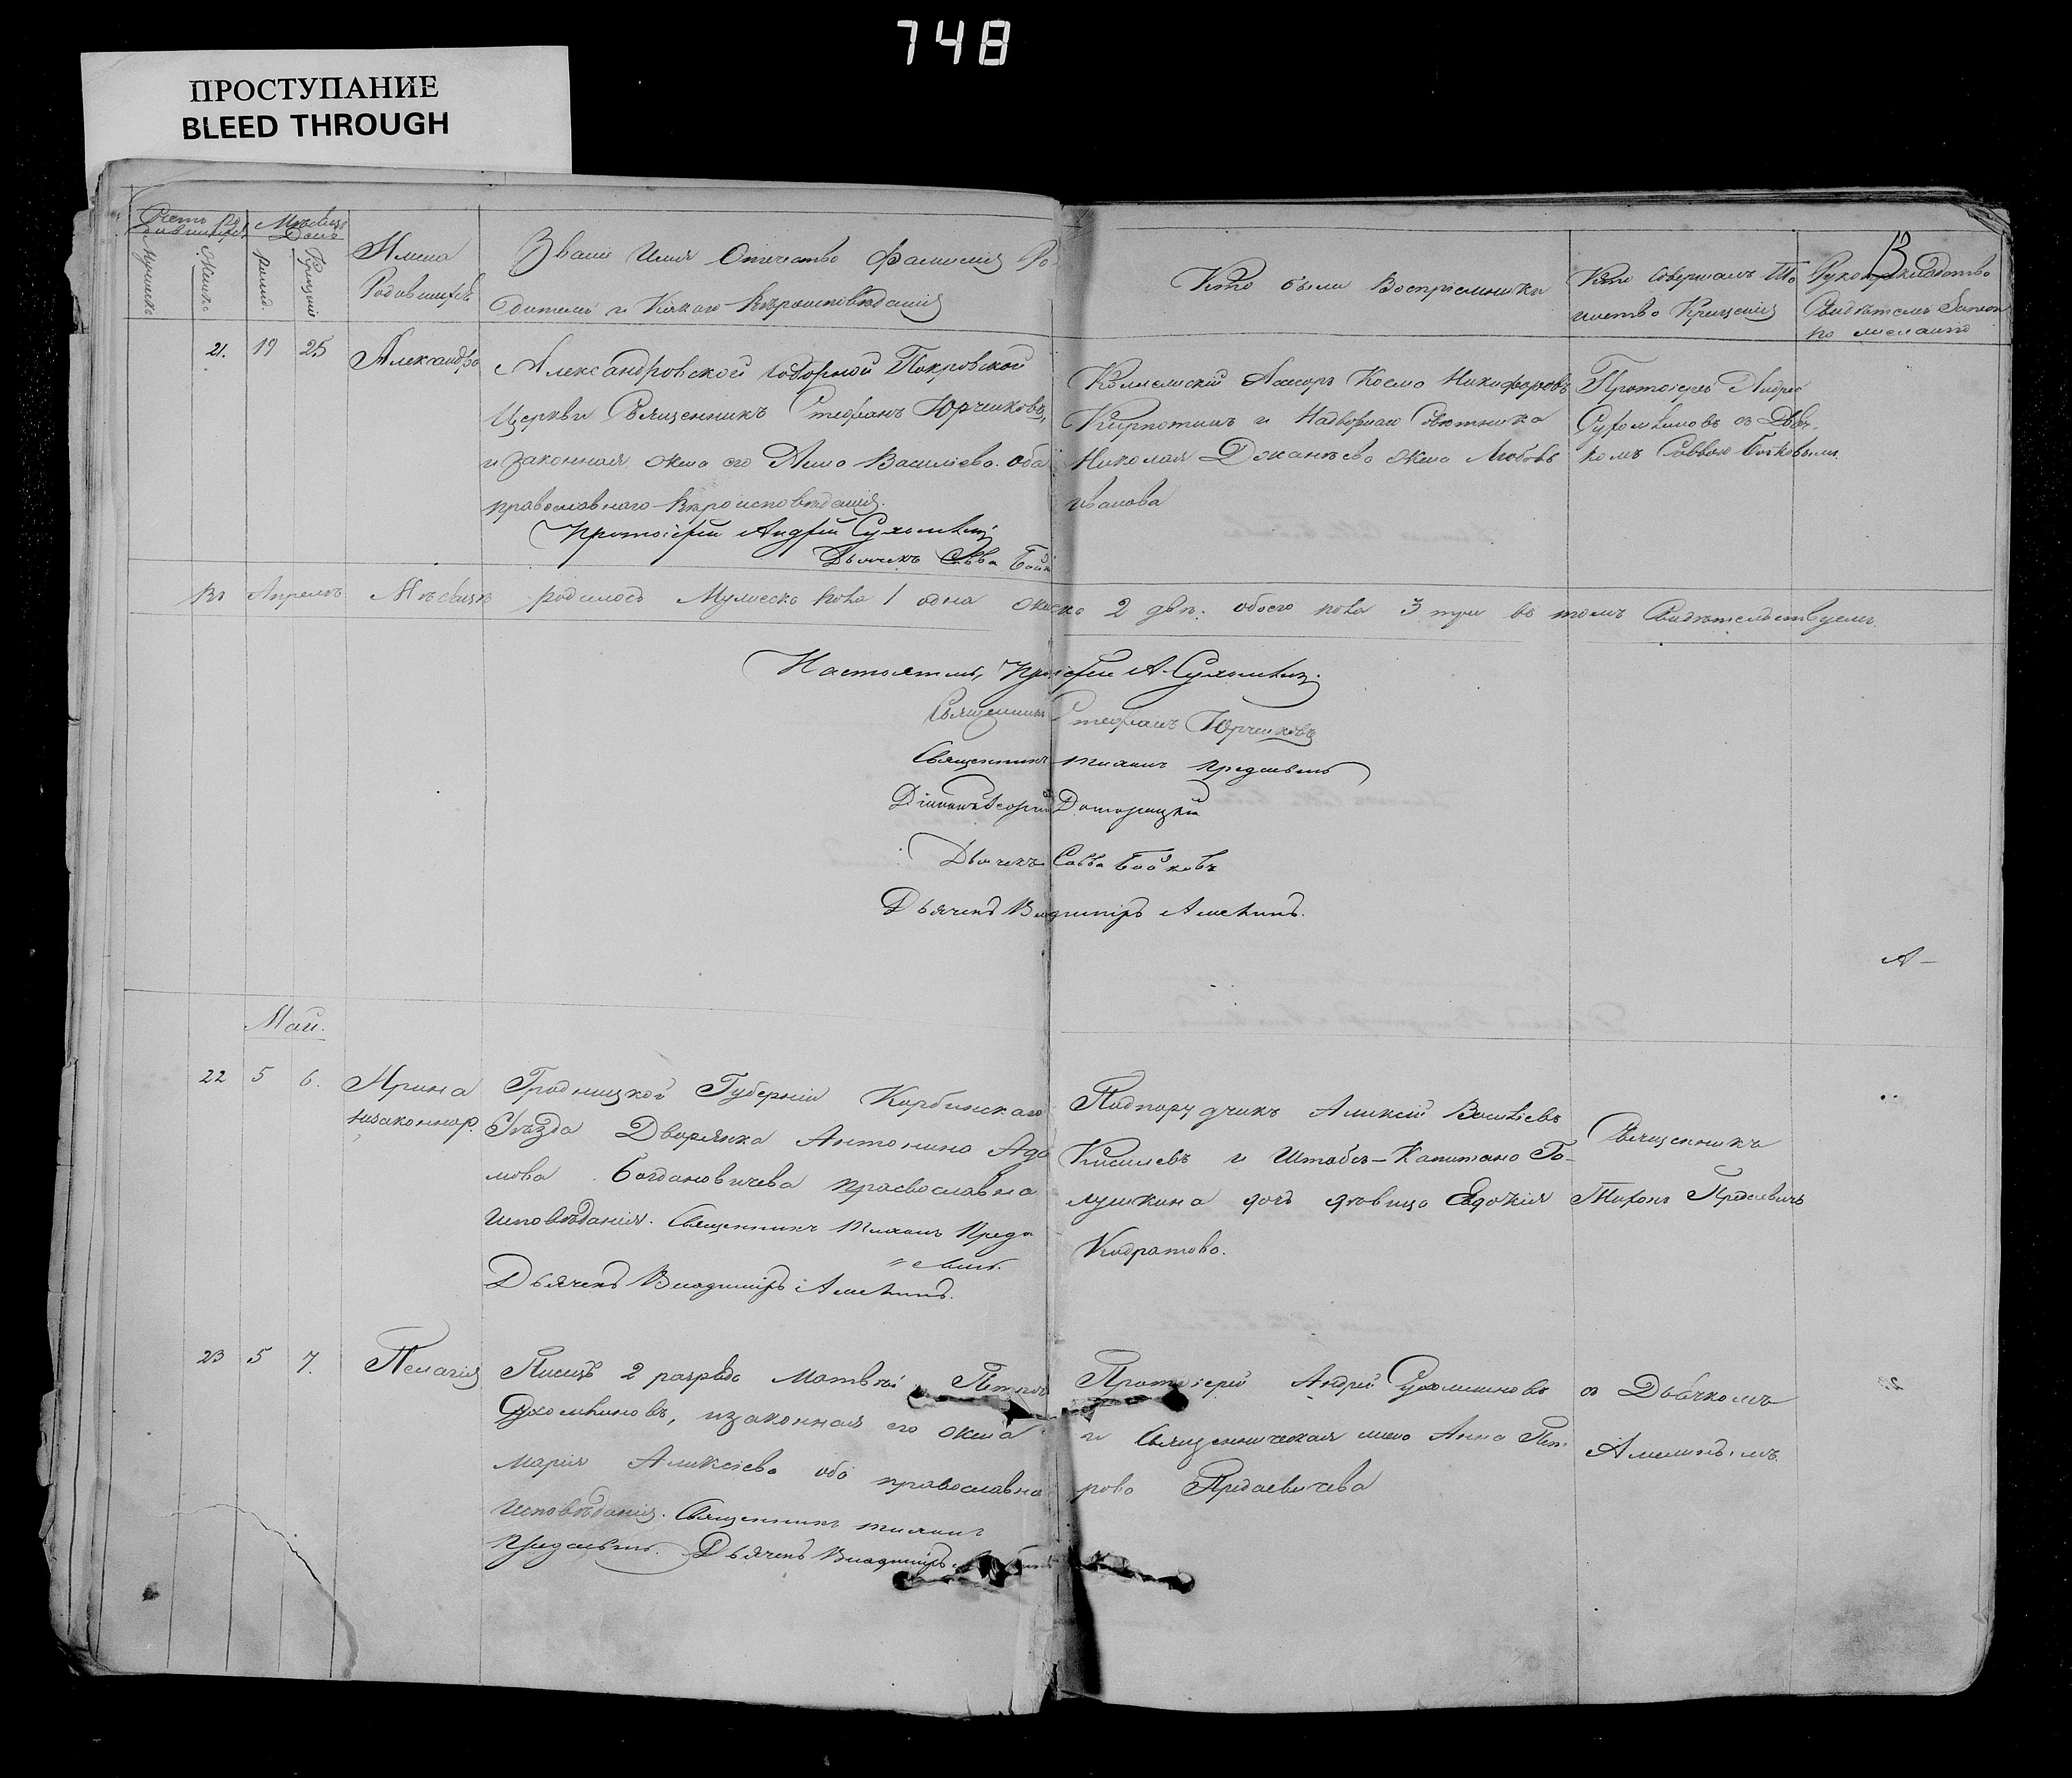 748
ПРОСТУПАНИЕ
BLEED THROUGH
13
Счетъ Ро
дившихся
Мѣсяцъ
День
Мужеска
Женска
рожд.
Крещенія
Имена
Родившихся
Званіе Имя Отечество Фамилія Ро-
дителей и Какого Вѣроисповѣданія
Кто были Воспріемники
Кто Совершалъ Та
инство Крещенія
Рукоприкладство
Свидѣтелей Записи
по желанію
21. 19 25 Александра
Александровской Соборной Покровской
Церкви Священникъ Стефанъ Юрченковъ,
и законная жена его Анна Васильева. оба
православнаго вѣроисповѣданія.
Протоіерей Андрей Сухомлин
Дьячекъ Савва Бойк
Колежскій Асесоръ Косма Никифоровъ
Кирпотинъ и Надворнаго Совѣтника
Николая Джанѣева жена Любовь
Иванова
Протоіерей Андрей
Сухомлиновъ съ Дьяч-
комъ Саввою Бойковымъ
Въ Апрелѣ Мѣсяцѣ родилось Мужеска пола 1 одна женска 2 двѣ. обоего пола 3 три въ томъ Свидѣтельствуемъ.
Настоятель, Протоіерей А. Сухомлин
Священникъ Стефанъ Юрченковъ
Священникъ Тихонъ Предаевичь
Діаконъ Георгій
Дьячекъ Савва Бойковъ
Дьячекъ Владиміръ Амелинъ.
А –
Май.
22 5 6. Ирина
незаконнор.
Гродницкой Губерніи Кобринскаго
Уѣзда Дворянка Антонина Ада
мова Богдановичева православна
Исповѣданія. Священникъ Тихонъ Преда
евичь.
Дьячекъ Владиміръ Амелинъ.
Подпоручикъ Алексій Васильевъ
Киселевъ и Штабсъ-Капитана Го-
лушкина дочь дѣвица Евдокія
Кодратова.
Священникъ
Тихонъ Предаевичъ
23 5 7. Пелагія
Писецъ 2 разряда Матвѣй Петровъ
Сухомлиновъ, и законная его жена
Марія Алексіева оба православна
Исповѣданія. Священникъ Тихонъ
Предаевичь. Дьячекъ Владиміръ
Протоіерей Андрей Сухомлиновъ
и Священническая жена Анна Пет
рова Предаевичева
съ Дьячкомъ
Амелинымъ.